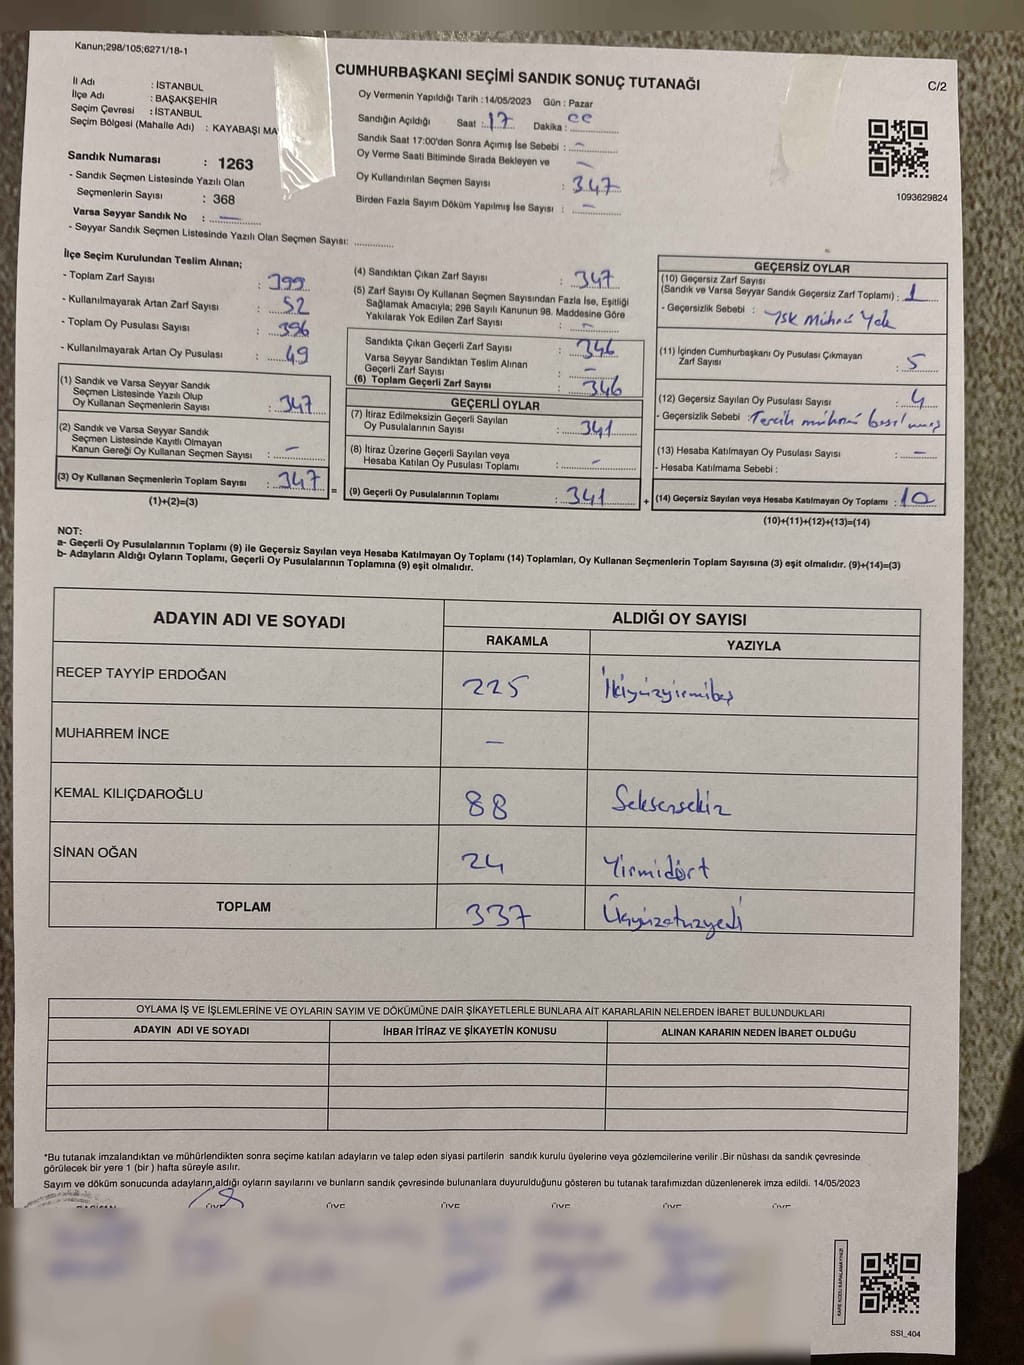 Kanun;298/105;6271/18-1
CUMHURBAŞKANI SEÇİMİ SANDIK SONUÇ TUTANAĞI
C/2
İl Adı : İSTANBUL
İlçe Adı : BAŞAKŞEHİR
Seçim Çevresi : İSTANBUL
Seçim Bölgesi (Mahalle Adı) : KAYABAŞI MA
Sandık Numarası : 1263
- Sandık Seçmen Listesinde Yazılı Olan
Seçmenlerin Sayısı : 368
Varsa Seyyar Sandık No : —
- Seyyar Sandık Seçmen Listesinde Yazılı Olan Seçmen Sayısı: ............
Oy Vermenin Yapıldığı Tarih :14/05/2023 Gün : Pazar
Sandığın Açıldığı Saat : 17 Dakika :
Sandık Saat 17:00'den Sonra Açımış İse Sebebi : —
Oy Verme Saati Bitiminde Sırada Bekleyen ve —
Oy Kullandırılan Seçmen Sayısı : 347
Birden Fazla Sayım Döküm Yapılmış İse Sayısı : —
1093629824
İlçe Seçim Kurulundan Teslim Alınan;
- Toplam Zarf Sayısı : 399
- Kullanılmayarak Artan Zarf Sayısı : 52
- Toplam Oy Pusulası Sayısı : 396
- Kullanılmayarak Artan Oy Pusulası : 49
(1) Sandık ve Varsa Seyyar Sandık
Seçmen Listesinde Yazılı Olup
Oy Kullanan Seçmenlerin Sayısı : 347
(2) Sandık ve Varsa Seyyar Sandık
Seçmen Listesinde Kayıtlı Olmayan
Kanun Gereği Oy Kullanan Seçmen Sayısı : —
(3) Oy Kullanan Seçmenlerin Toplam Sayısı : 347
(1)+(2)=(3)
=
(4) Sandıktan Çıkan Zarf Sayısı : 347
(5) Zarf Sayısı Oy Kullanan Seçmen Sayısından Fazla İse, Eşitliği
Sağlamak Amacıyla; 298 Sayılı Kanunun 98. Maddesine Göre
Yakılarak Yok Edilen Zarf Sayısı : —
Sandıkta Çıkan Geçerli Zarf Sayısı : 346
Varsa Seyyar Sandıktan Teslim Alınan
Geçerli Zarf Sayısı : —
(6) Toplam Geçerli Zarf Sayısı : 346
GEÇERLİ OYLAR
(7) İtiraz Edilmeksizin Geçerli Sayılan
Oy Pusulalarının Sayısı : 341
(8) İtiraz Üzerine Geçerli Sayılan veya
Hesaba Katılan Oy Pusulası Toplamı : —
(9) Geçerli Oy Pusulalarının Toplamı : 341
+
GEÇERSİZ OYLAR
(10) Geçersiz Zarf Sayısı
(Sandık ve Varsa Seyyar Sandık Geçersiz Zarf Toplamı) : 1
- Geçersizlik Sebebi : YSK Mührü Yok
(11) İçinden Cumhurbaşkanı Oy Pusulası Çıkmayan
Zarf Sayısı : 5
(12) Geçersiz Sayılan Oy Pusulası Sayısı : 4
- Geçersizlik Sebebi : Tercih mührü basılmamış
(13) Hesaba Katılmayan Oy Pusulası Sayısı : —
- Hesaba Katılmama Sebebi :
(14) Geçersiz Sayılan veya Hesaba Katılmayan Oy Toplamı : 10
(10)+(11)+(12)+(13)=(14)
NOT:
a- Geçerli Oy Pusulalarının Toplamı (9) ile Geçersiz Sayılan veya Hesaba Katılmayan Oy Toplamı (14) Toplamları, Oy Kullanan Seçmenlerin Toplam Sayısına (3) eşit olmalıdır. (9)+(14)=(3)
b- Adayların Aldığı Oyların Toplamı, Geçerli Oy Pusulalarının Toplamına (9) eşit olmalıdır.
ADAYIN ADI VE SOYADI ALDIĞI OY SAYISI
RAKAMLA YAZIYLA
RECEP TAYYİP ERDOĞAN 225 İkiyüzyirmibeş
MUHARREM İNCE —
KEMAL KILIÇDAROĞLU 88 Seksensekiz
SİNAN OĞAN 24 Yirmidört
TOPLAM 337 Üçyüzotuzyedi
OYLAMA İŞ VE İŞLEMLERİNE VE OYLARIN SAYIM VE DÖKÜMÜNE DAİR ŞİKAYETLERLE BUNLARA AİT KARARLARIN NELERDEN İBARET BULUNDUKLARI
ADAYIN ADI VE SOYADI İHBAR İTİRAZ VE ŞİKAYETİN KONUSU ALINAN KARARIN NEDEN İBARET OLDUĞU
*Bu tutanak imzalandıktan ve mühürlendikten sonra seçime katılan adayların ve talep eden siyasi partilerin sandık kurulu üyelerine veya gözlemcilerine verilir .Bir nüshası da sandık çevresinde
görülecek bir yere 1 (bir ) hafta süreyle asılır.
Sayım ve döküm sonucunda adayların,aldığı oyların sayılarını ve bunların sandık çevresinde bulunanlara duyurulduğunu gösteren bu tutanak tarafımızdan düzenlenerek imza edildi. 14/05/2023
BAŞKAN ÜYE ÜYE ÜYE ÜYE ÜYE ÜYE
KARE KODU KAPALAMAYINIZ!
SSI_404